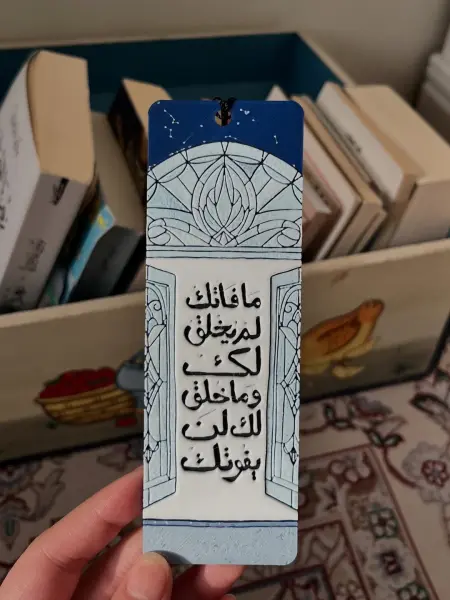 ما فاتك
لم يخلق
لك
وما خلق
لك لن
يفوتك